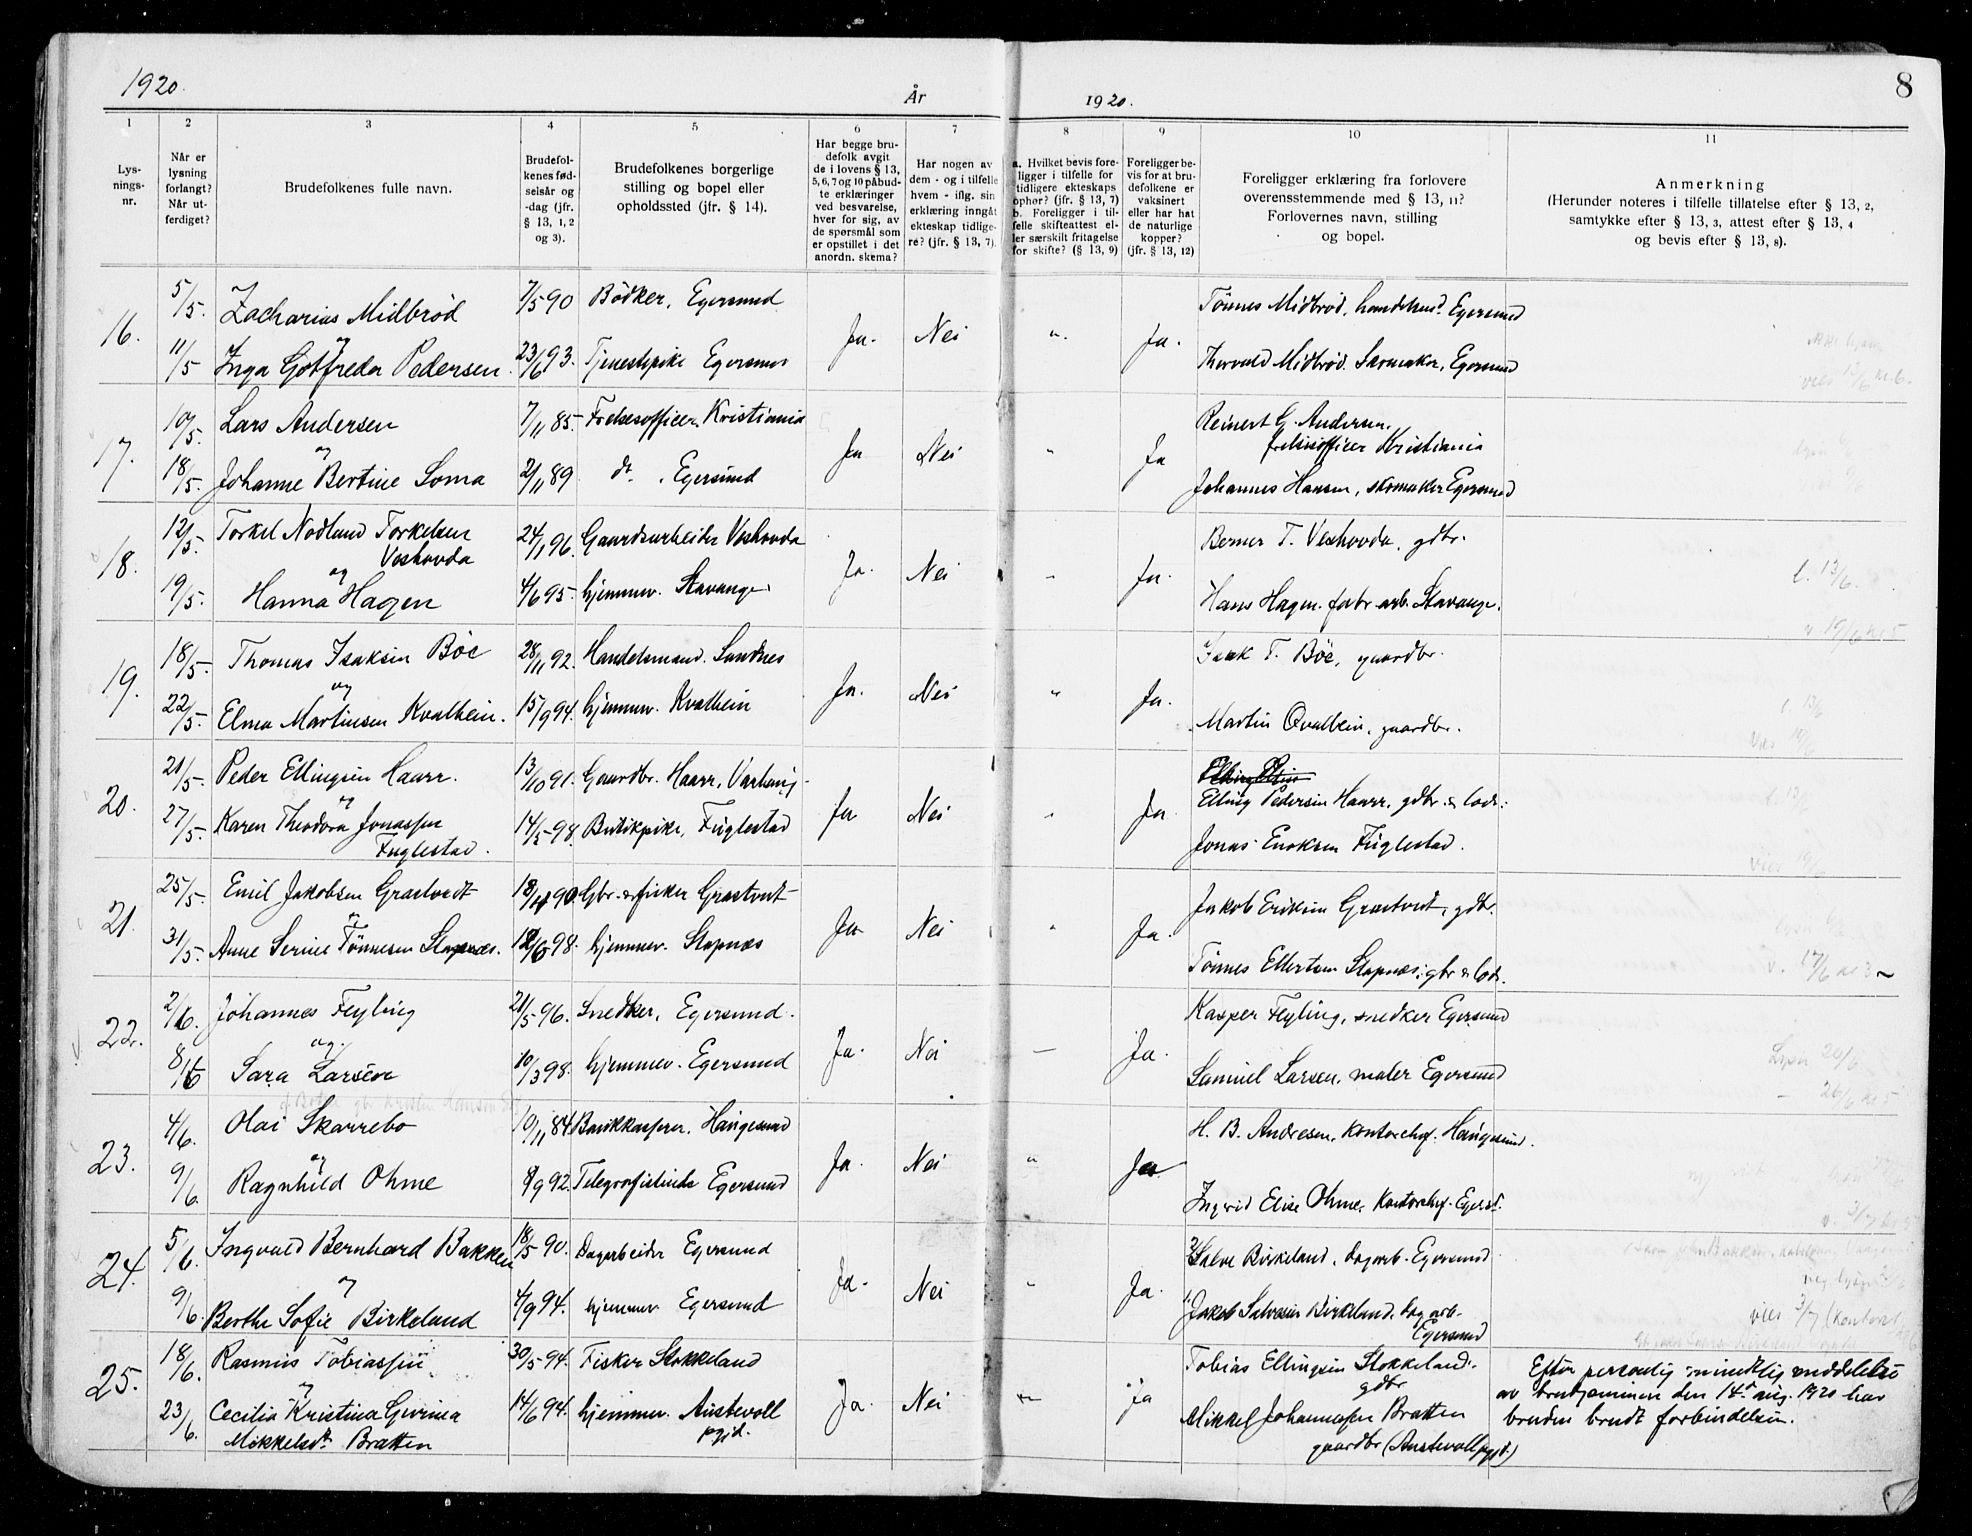 1920.
År
1920.
8
1
2
3
4
5
6
7
8
9
10
11
Lys-
nings-
nr.
Når er
lysning
forlangt?
Når ut-
ferdiget?
Brudefolkenes fulle navn.
Brudefol-
kenes fød-
selsår og
-dag (jfr.
§ 13, 1, 2
og 3).
Brudefolkenes borgerlige
stilling og bopel eller
opholdssted (jfr. § 14).
Har begge bru-
defolk avgit
de i lovens § 13,
5, 6, 7 og 10 påbud-
te erklæringer
ved besvarelse,
hver for sig, av
de spørsmål som
er opstillet i det
anordn. skema?
Har nogen av
dem - og i tilfelle
hvem - iflg. sin
erklæring inngåt
ekteskap tidlige-
re? (jfr. § 13, 7).
a. Hvilket bevis fore-
ligger i tilfelle for
tidligere ekteskaps
ophør? (jfr. § 13, 7)
b. Foreligger i til-
felle skifteattest el-
ler særskilt fritagelse
for skifte? (§ 13, 9)
Foreligger be-
vis for at bru-
defolkene er
vaksinert
eller har hat
de naturlige
kopper?
(jfr. § 13, 12)
Foreligger erklæring fra forlovere
overensstemmende med § 13, 11?
Forlovernes navn, stilling
og bopel.
Anmerkning
(Herunder noteres i tilfelle tillatelse efter § 13, 2,
samtykke efter § 13, 3, attest efter § 13, 4
og bevis efter § 13, 8).
16.
5/5. Zacharias Midbrød 7/5 90 Bödker, Egersund Tönnes Midbrød, handelsmd. Egersund
og Ja. Nei " Ja.
11/5 Inga Gotfreda Pedersen. 23/6 93. Tjenestepike Egersund Thorvald Midbrød. Skomaker, Egersund
vies 13/6 kl. 6.
17.
10/5. Lars Andersen 7/11 85. Frelsesofficer, Kristiania Reinert G. Andersen,
frelsesofficer Kristiania
og Ja Nei " Ja
18/5. Johanne Bertine Soma 2/11 89 do. Egersund Johannes Hansen, skomaker Egersund
18.
12/5. Torkel Nodland Torkelsen 24/1 96. Gaardsarbeider Veshovda Berner T. Veshovda, gdbr.
Veshovda
og Ja. Nei " Ja. l. 13/6.
19/5. Hanna Hagen 4/6 95. hjemmev. Stavanger Hans Hagen. fabr. arb. Stavanger.
v. 19/6 kl 5
19.
18/5. Thomas Isaksen Böe 28/11 92. Handelsmand. Sandnes Isak T. Böe, gaardbr.
og Ja. Nei " Ja. l. 13/6
22/5. Elma Martinsen Kvalbein. 15/9 94. hjemmev. Kvalbein Martin Qvalbein, gaardbr.
20.
21/5. Peder Ellingsen Haarr. 13/10 91. Gaardbr. Haarr, Varhaug
Elling Pedersen Haarr, gdbr. & lods.
og Ja Nei " Ja.
27/5. Karen Theodora Jonassen 14/5 98. Butikpike, Fuglestad Jonas Enoksen Fuglestad.
Fuglestad.
vies 19/6
21.
25/5. Emil Jakobsen Grastveit 90. Gbr. & fisker Grastveit Jakob Eriksen Grastveit, gdbr.
og Ja Nei " Ja.
31/5. Anne Serine Tönnesen Stapnæs. 98. hjemmev. Stapnæs Tönnes Ellertsen Stapnæs, gbr & lods.
v. 17/6 kl 3
22.
2/6. Johannes Feyling 21/5 96. Snedker, Egersund. Kasper Feyling, snedker Egersund
og. Ja. Nei — Ja. Lyser 20/6
8/6 Sara Larsen 10/3 98. hjemmev. Egersund Samuel Larsen, maler Egersund
26/6 kl 5
23.
4/6. Olai Skarrebo 10/11 84. Bankkasserer, Haugesund H. B. Andresen, Kontorchef. Haugesund.
og Ja. Nei " Ja.
9/6. Ragnhild Ohme 8/9 92. Telegrafistinde Egersund Ingrid Elise Ohme, Kontorchef. Egersd.
24.
5/6. Ingvald Bernhard Bakken 18/5 90. Dagarbeider Egersund Salve Birkeland, dagarb. Egersund
og Ja. Nei " Ja.
9/6. Berthe Sofie Birkeland 4/9 94. hjemmev. Egersund Jakob Salvesen Birkeland, dagarb.
Egersund
vies 3/7 (Kontoret
25.
18/6. Rasmus Tobiassen 30/5 94. Fisker Stokkeland Tobias Ellingsen Stokkeland.
gdbr
og Ja. Nei " Ja
23/6. Cecilia Kristina Gurina 14/6 94. hjemmev. Austevoll Mikkel Johannessen Bratten
Mikkelsdt. Bratten pgjd. gaardbr (Austevoll pgjd.)
Efter personlig mundtlig meddelelse
av brudgommen den 14d aug. 1920 har
bruden brudt forbindelsen.